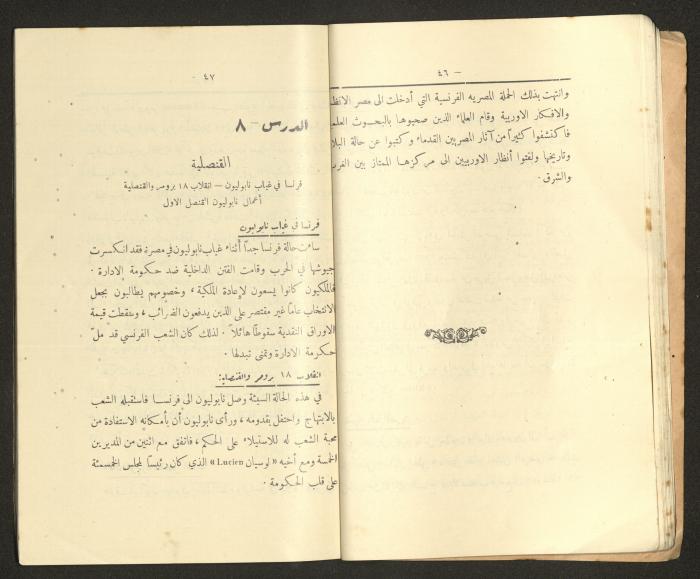 — ٤٦
وانتهت بذلك الحملة المصريه الفرنسية التي أدخلت الى مصر
والافكار الاوربية وقام العلماء الذين صحبوها بالبحوث
فاكتشفوا كثيراً من آثار المصريين القدماء وكتبوا عن حالة
وتاريخها ولفتوا أنظار الاوربيين الى مركزها الممتاز بين
والشرق.
٤٧
الدرس – ٨
القنصلية
فرنسا في غياب نابوليون – انقلاب ١٨ برومر والقنصلية
أعمال نابوليون القنصل الاول
فرنسا في غياب نابوليون
ساءت حالة فرنسا جداً أثناء غياب نابوليون في مصر، فقد انكسرت
جيوشها في الحرب وقامت الفتن الداخلية ضد حكومة الادارة .
فالملكيون كانوا يسعون لإعادة الملكية ، وخصومهم يطالبون بجعل
الانتخاب عاماً غير مقتصر على الذين يدفعون الضرائب ، وسقطت قيمة
الاوراق النقدية سقوطاً هائلاً . لذلك كان الشعب الفرنسي قد ملّ
حكومة الادارة وتمنى تبدلها .
انقلاب ١٨ برومر والقنصلية:
في هذه الحالة السيئة وصل نابوليون الى فرنسا فاستقبله الشعب
بالابتهاج واحتفل بقدومه ، ورأى نابوليون أن بأمكانه الاستفادة من
محبة الشعب له للاستيلاء على الحكم ، فاتفق مع اثنين من المديرين
الخمسة ومع أخيه « لوسيان Lucien » الذي كان رئيساً لمجلس الخمسمئة
على قلب الحكومة .